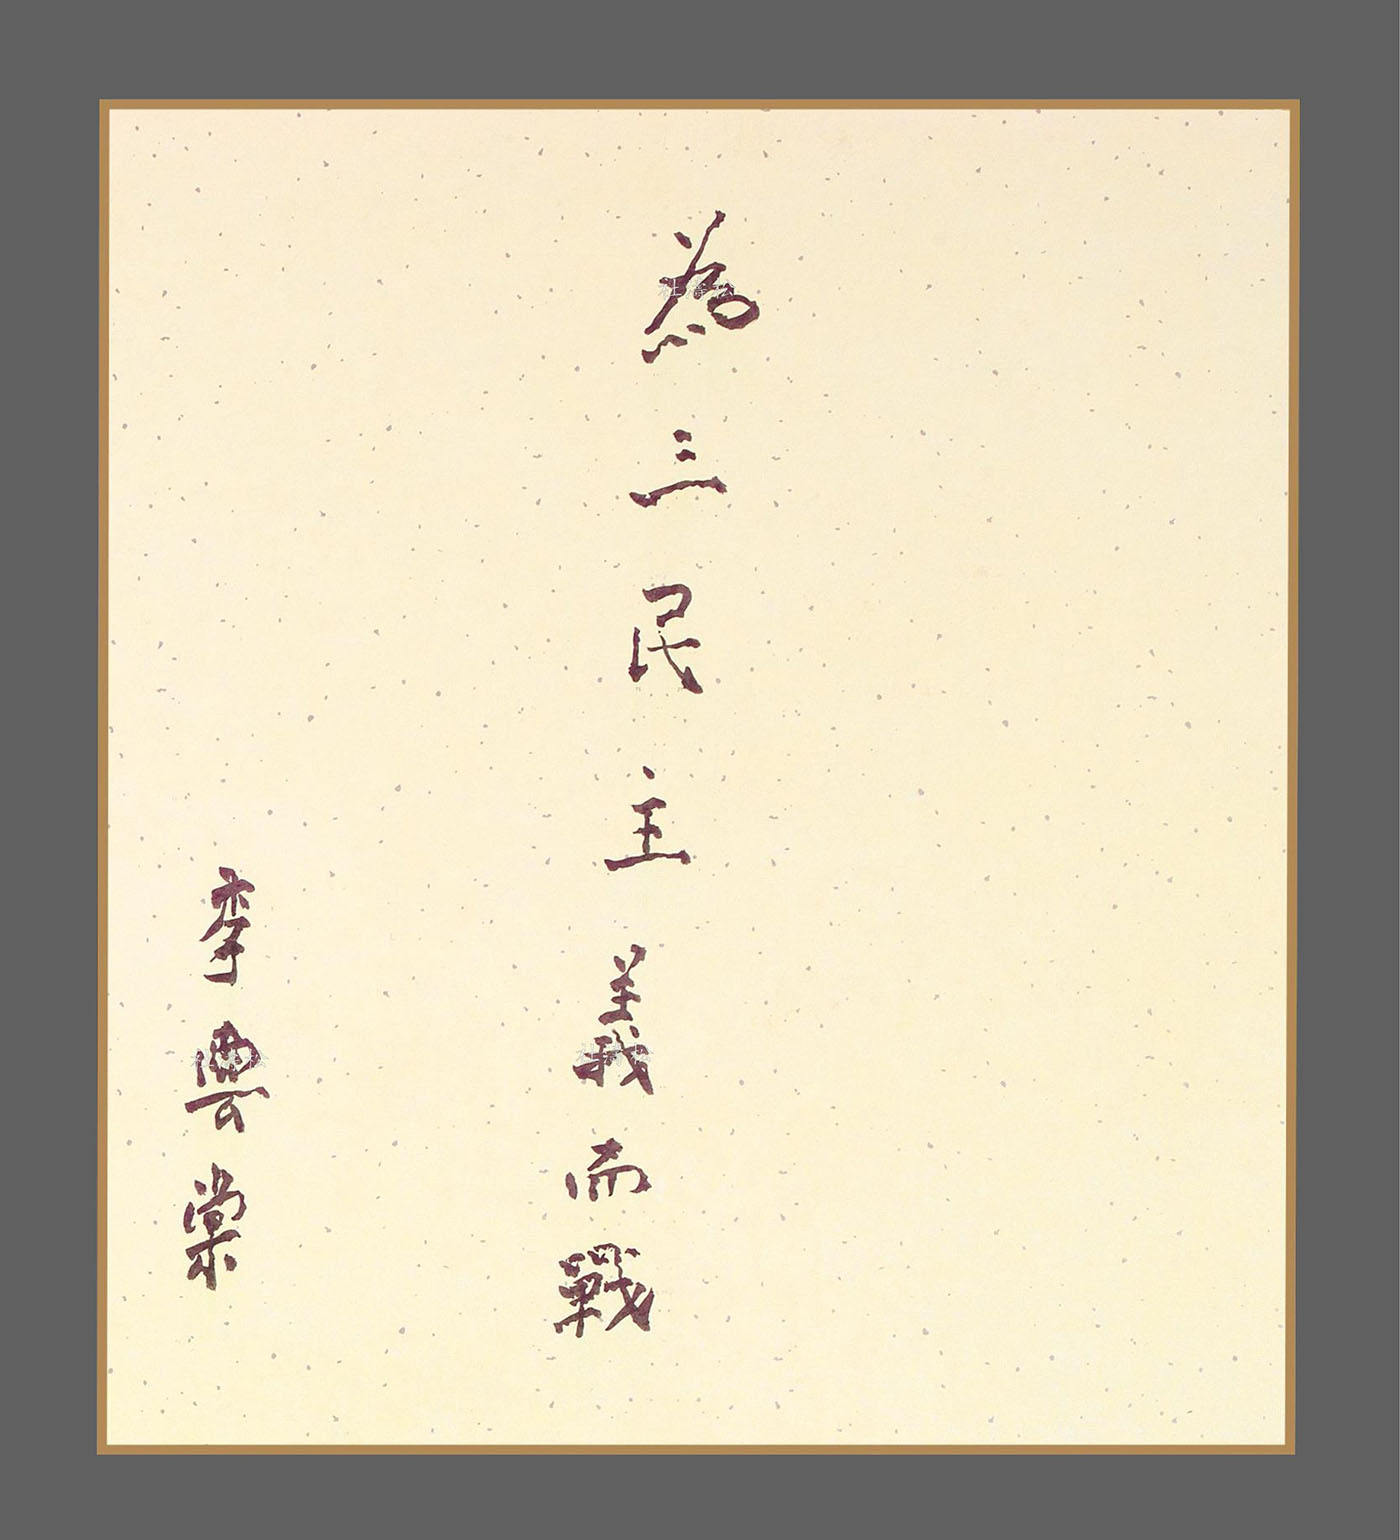 為三民主義而戰
李雲棠